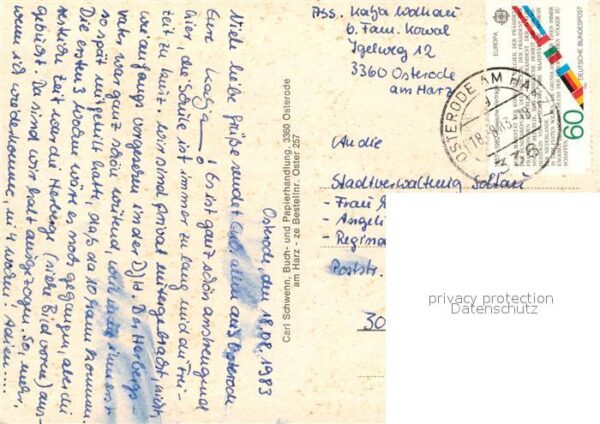 Abs. Katja Wolkau
b. Fam. Kowal
Igelweg 12
3360 Osterode
am Harz
EUROPA
DEUTSCHE BUNDESPOST
60
OSTERODE AM HARZ
An die
Stadtverwaltung Soltau
- Frau
- Angeli
- Regina
Poststr.
30
privacy protection
Datenschutz
Carl Schwenn, Buch- und Papierhandlung, 3360 Osterode
am Harz - ze Bestellnr. Oster 257
Osterode, den 18.08.1983
Viele liebe Grüße sendet Euch allen aus Osterode
Eure Katja Es ist ganz schön anstrengend
hier, die Schule ist immer zu lang und die Frei-
zeit zu kurz. Wir sind privat untergebracht, nicht,
wie anfangs vorgesehen in der DJH. Der Herbergs-
vater war ganz schön wütend, weil man ihm erst
so spät mitgeteilt hatte, daß da 10 Mann kommen.
Die ersten 3 Wochen wäre es noch gegangen, aber die
restliche Zeit war die Herberge (siehe Bild vorne) aus-
gebucht. Da sind wir halt ausgezogen. So, mehr,
wenn ich wiederkomme,